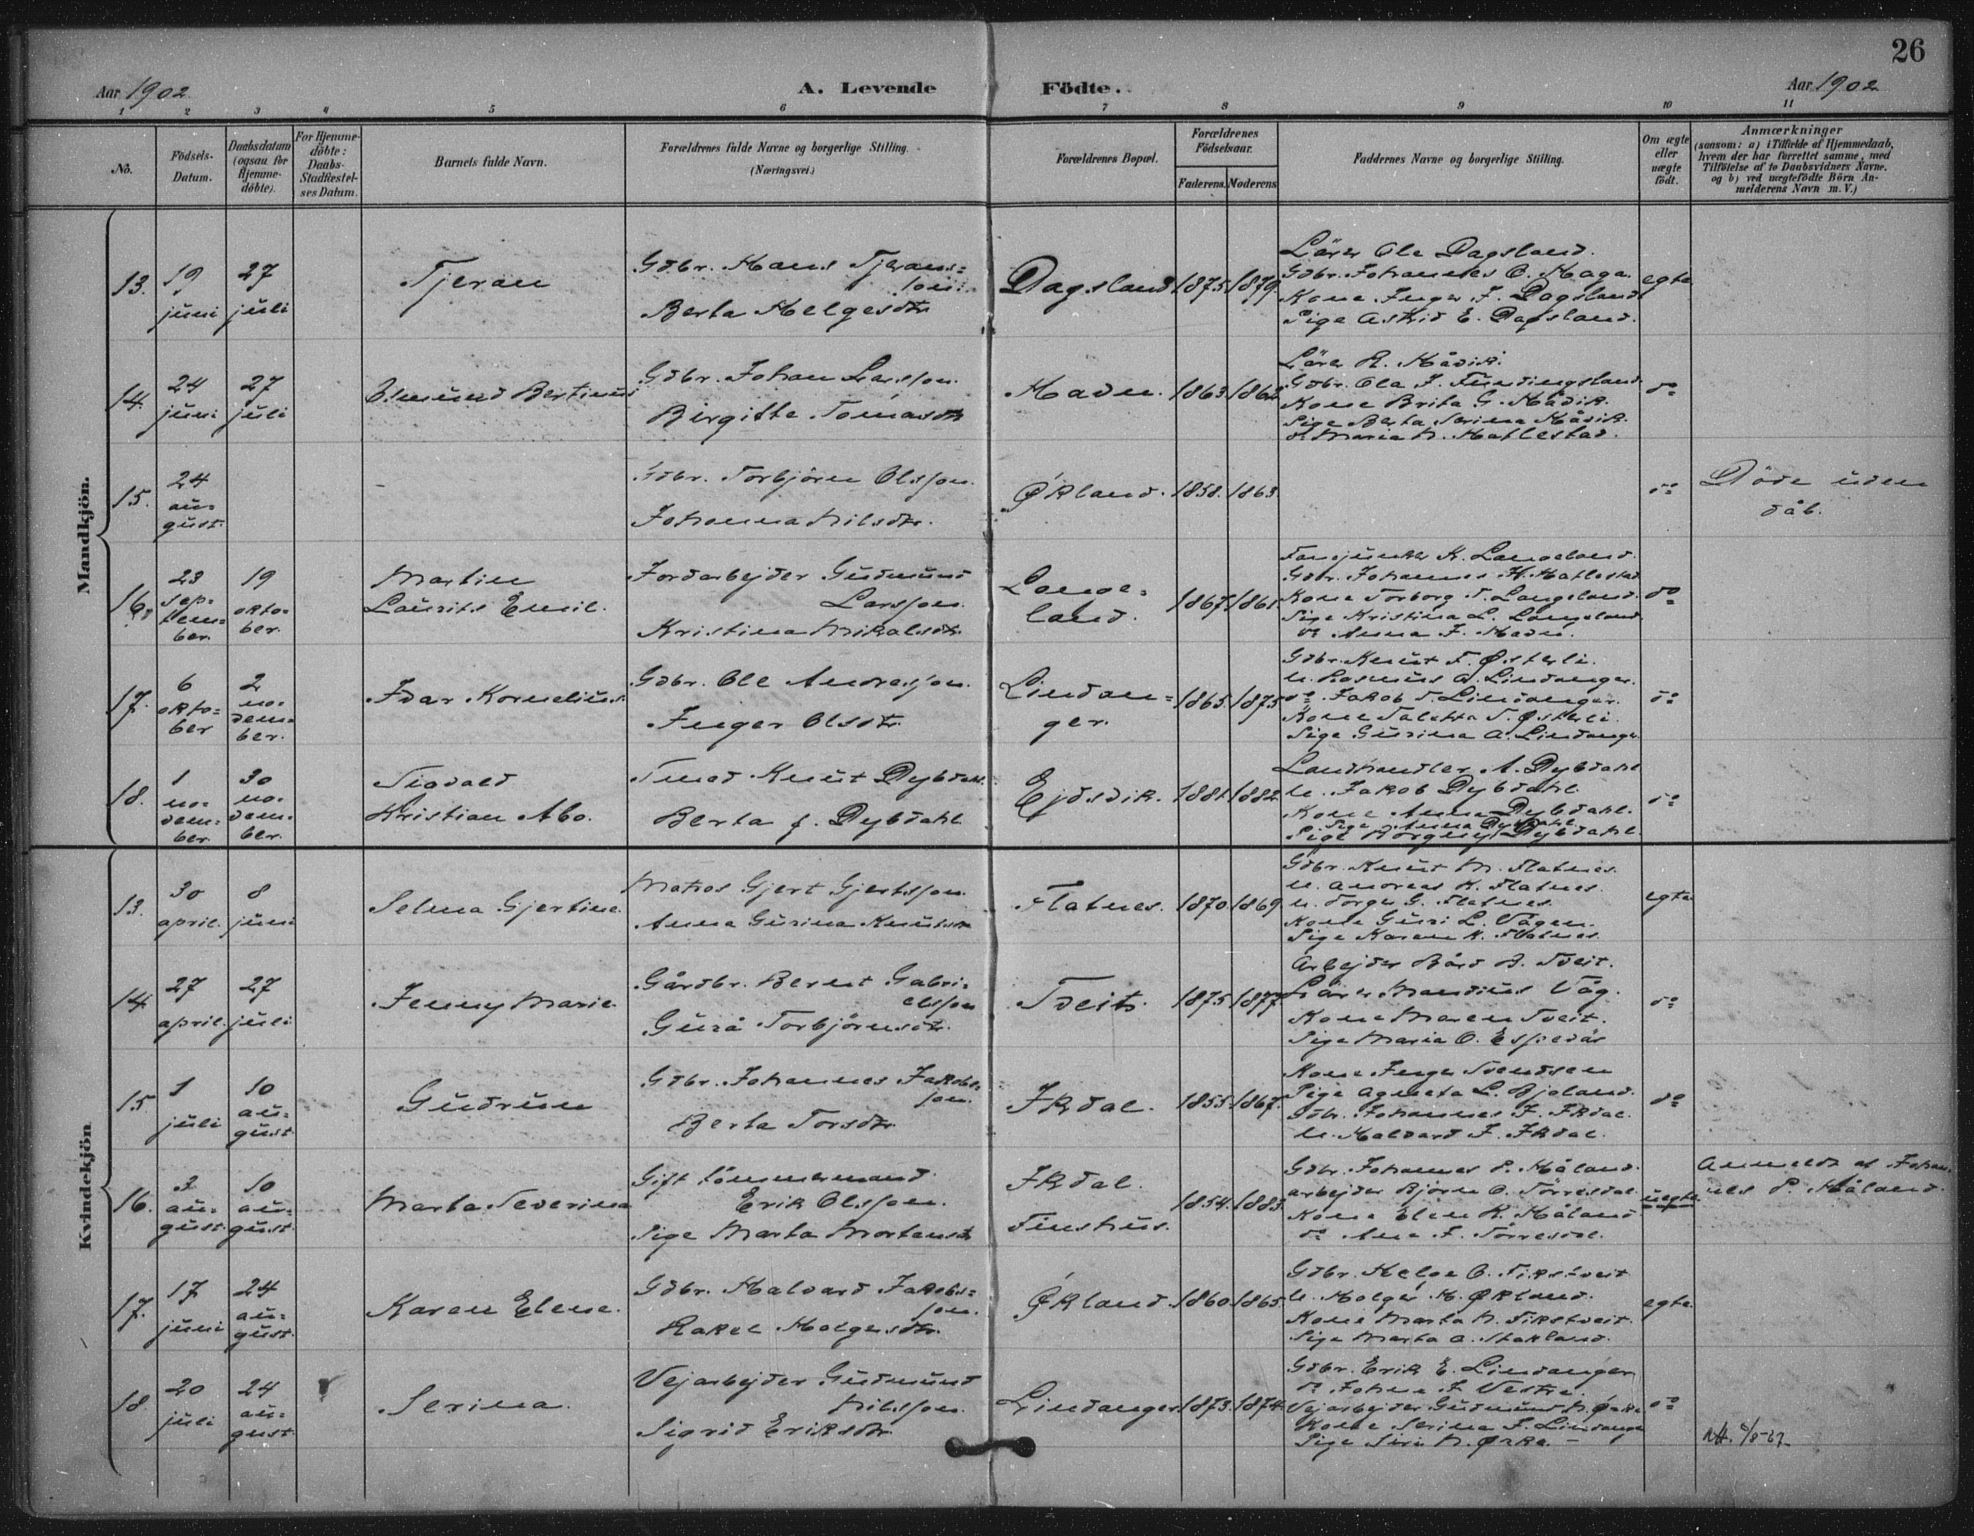 26
Aar 1902
A. Levende Födte.
Aar 1902
1 2 3 4 5 6 7 8 9 10 11
No.
Födsels-Datum.
Daabsdatum (ogsaa for Hjemme-döbte).
For Hjemme-döbte: Daabs-Stadfæstel-ses Datum.
Barnets fulde Navn.
Forældrenes fulde Navne og borgerlige Stilling. (Næringsvei.)
Forældrenes Bopæl.
Forældrenes Födselsaar.
Faderens. Moderens
Faddernes Navne og borgerlige Stilling.
Om ægte eller uægte födt.
Anmærkninger
(saasom: a) i Tilfælde af Hjemmedaab, hvem der har forrettet samme, med Tilföielse af to Daabsvidners Navne, og b) ved uægtefödte Börn An-melderens Navn m. V.)
Mandkjön.
13. 19 juni 27 juli
Tjeran
Gdbr. Hans Tjerans=son.
Berta Helgesdtr
Dagsland 1875. 1879
Lärer Ole Dagsland.
Gdbr. Johannes O. Haga.
Kone Inger J. Dagsland
Pige Astrid E. Dagsland.
egte
14. 24 juni 27 juli
Osmund Bertinus
Gdbr. Johan Larsson.
Birgitte Tomasdtr
Hadn. 1863. 1862
Lärer R. Håvik.
Gdbr. Ola J. Findingsland.
Kone Brita G. Håvik.
Pige Berta Serina Håvik.
do Maria N. Hatlestad.
do
15. 24 august.
Gdbr. Torbjörn Olsson.
Johanna Nilsdtr.
Økland. 1858. 1863.
do
Döde uden dåb.
16. 23 september. 19 oktober.
Martin Laurits Emil.
Jordarbejder Gudmund Larsson.
Kristina Mikalsdtr.
Lange=land. 1867. 1861.
K. Langeland.
Gdbr. Johannes H. Hatlestad
Kone Torborg T. Langeland.
Pige Kristina L. Langeland
do Anna J. Hadn.
do
17. 6 oktober 2 november.
Ivar Kornelius.
Gdbr. Ole Andresson.
Inger Olsdtr.
Lindan=ger. 1865. 1873
Gdbr. Knut T. Østerli.
U. Rasmus A. Lindanger.
do Jakob T. Lindanger.
Kone Taletta T. Østerli.
Pige Gurina A. Lindanger
do
18. 1 november. 30 november.
Sigvald Kristian Abo.
Smed Knut Dybdahl.
Berta f. Dybdahl
Ejdsvik. 1881. 1882.
Landhandler A. Dybdahl
U. Jakob Dybdahl.
Kone Anna Dybdahl.
Pige Anna Dybdahl.
Pige Borgny Dybdahl.
do
Kvindekjön
13. 30 april. 8 juni
Selma Gjertine.
Matros Gjert Gjertsson.
Anna Gurina Knutsdtr
Flatnes. 1870. 1869
Gdbr. Knut M. Flatnes.
U. Andreas K. Flatnes.
U. Torger G. Flatnes.
Kone Guri L. Vågen.
Pige Karen K. Flatnes.
egte
14. 27 april. 27 juli
Jenny Marie
Gårdbr. Bernt Gabri=elsson
Gurå Torbjörnsdtr.
Tveit. 1875. 1877.
Arbejder Bård B. Tveit.
Lärer Mandius Våg.
Kone Maren Tveit.
Pige Maria O. Espedås
do
15. 1 juli 10 august.
Gudrun
Gdbr. Johannes Jakobs=son.
Berta Torsdtr.
Ikdal. 1855. 1867.
Kone Inger Svendsen
Pige Agneta L. Bjoland.
Gdbr. Johannes J. Ikdal.
U. Halvard J. Ikdal.
do
16. 3 august. 10 august.
Marta Severina
Gift tömmermand. Erik Olsson.
Pige Marta Mortensdtr
Ikdal. Finshus. 1854. 1883.
Gdbr. Johannes P. Håland.
Arbejder Björn O. Törresdal.
Kone Elen K. Håland
do Ane J. Törresdal.
uegte
Anmeldt af Johan=nes P. Håland.
17. 17 juni 24 august.
Karen Elene.
Gdbr. Halvard Jakobs=son.
Rakel Holgersdtr.
Økland. 1860. 1865.
Gdbr. Helge O. Fikstveit
U. Holger H. Økland.
Kone Marta N. Fikstveit.
Pige Marta A. Stakland.
egte.
18. 20 juli 24 august.
Serina.
Vejarbejder Gudmund Nilsson.
Sigrid Eriksdtr.
Lindanger. 1873. 1874.
Gdbr. Erik E. Lindanger
do Johan J. Vestre.
Vejarbejder Gudmund N. Ørke
Kone Serina J. Lindanger
Pige Siri N. Ørke.
do